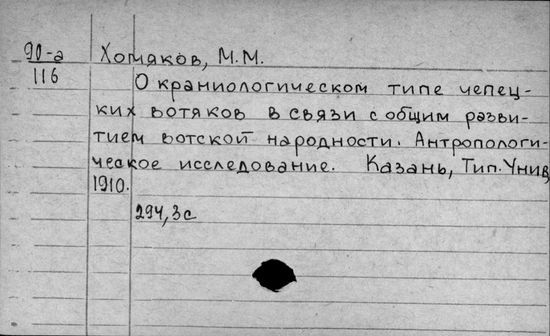 90-а Хомяков, М.М.
116
О краниологическом типе чепец-
ких вотяков в связи с общим разви-
тием вотской народности. Антропологи-
ческое исследование. Казань, Тип. Унив,
1910.
294,3с